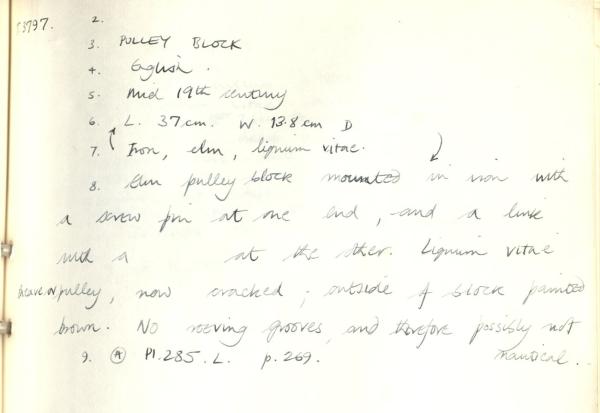 T3797.
2.
3. PULLEY BLOCK
4. English.
5. Mid 19th century
6. L. 37cm. W. 13.8cm D
7. Iron, elm, lignum vitae.
8. Elm pulley block mounted in iron with
a screw pin at one end, and a link
with a at the other. Lignum vitae
sheave or pulley, now cracked; outside of block painted
brown. No reeving grooves, and therefore possibly not
nautical..
9. A Pl.285.L. p.269.